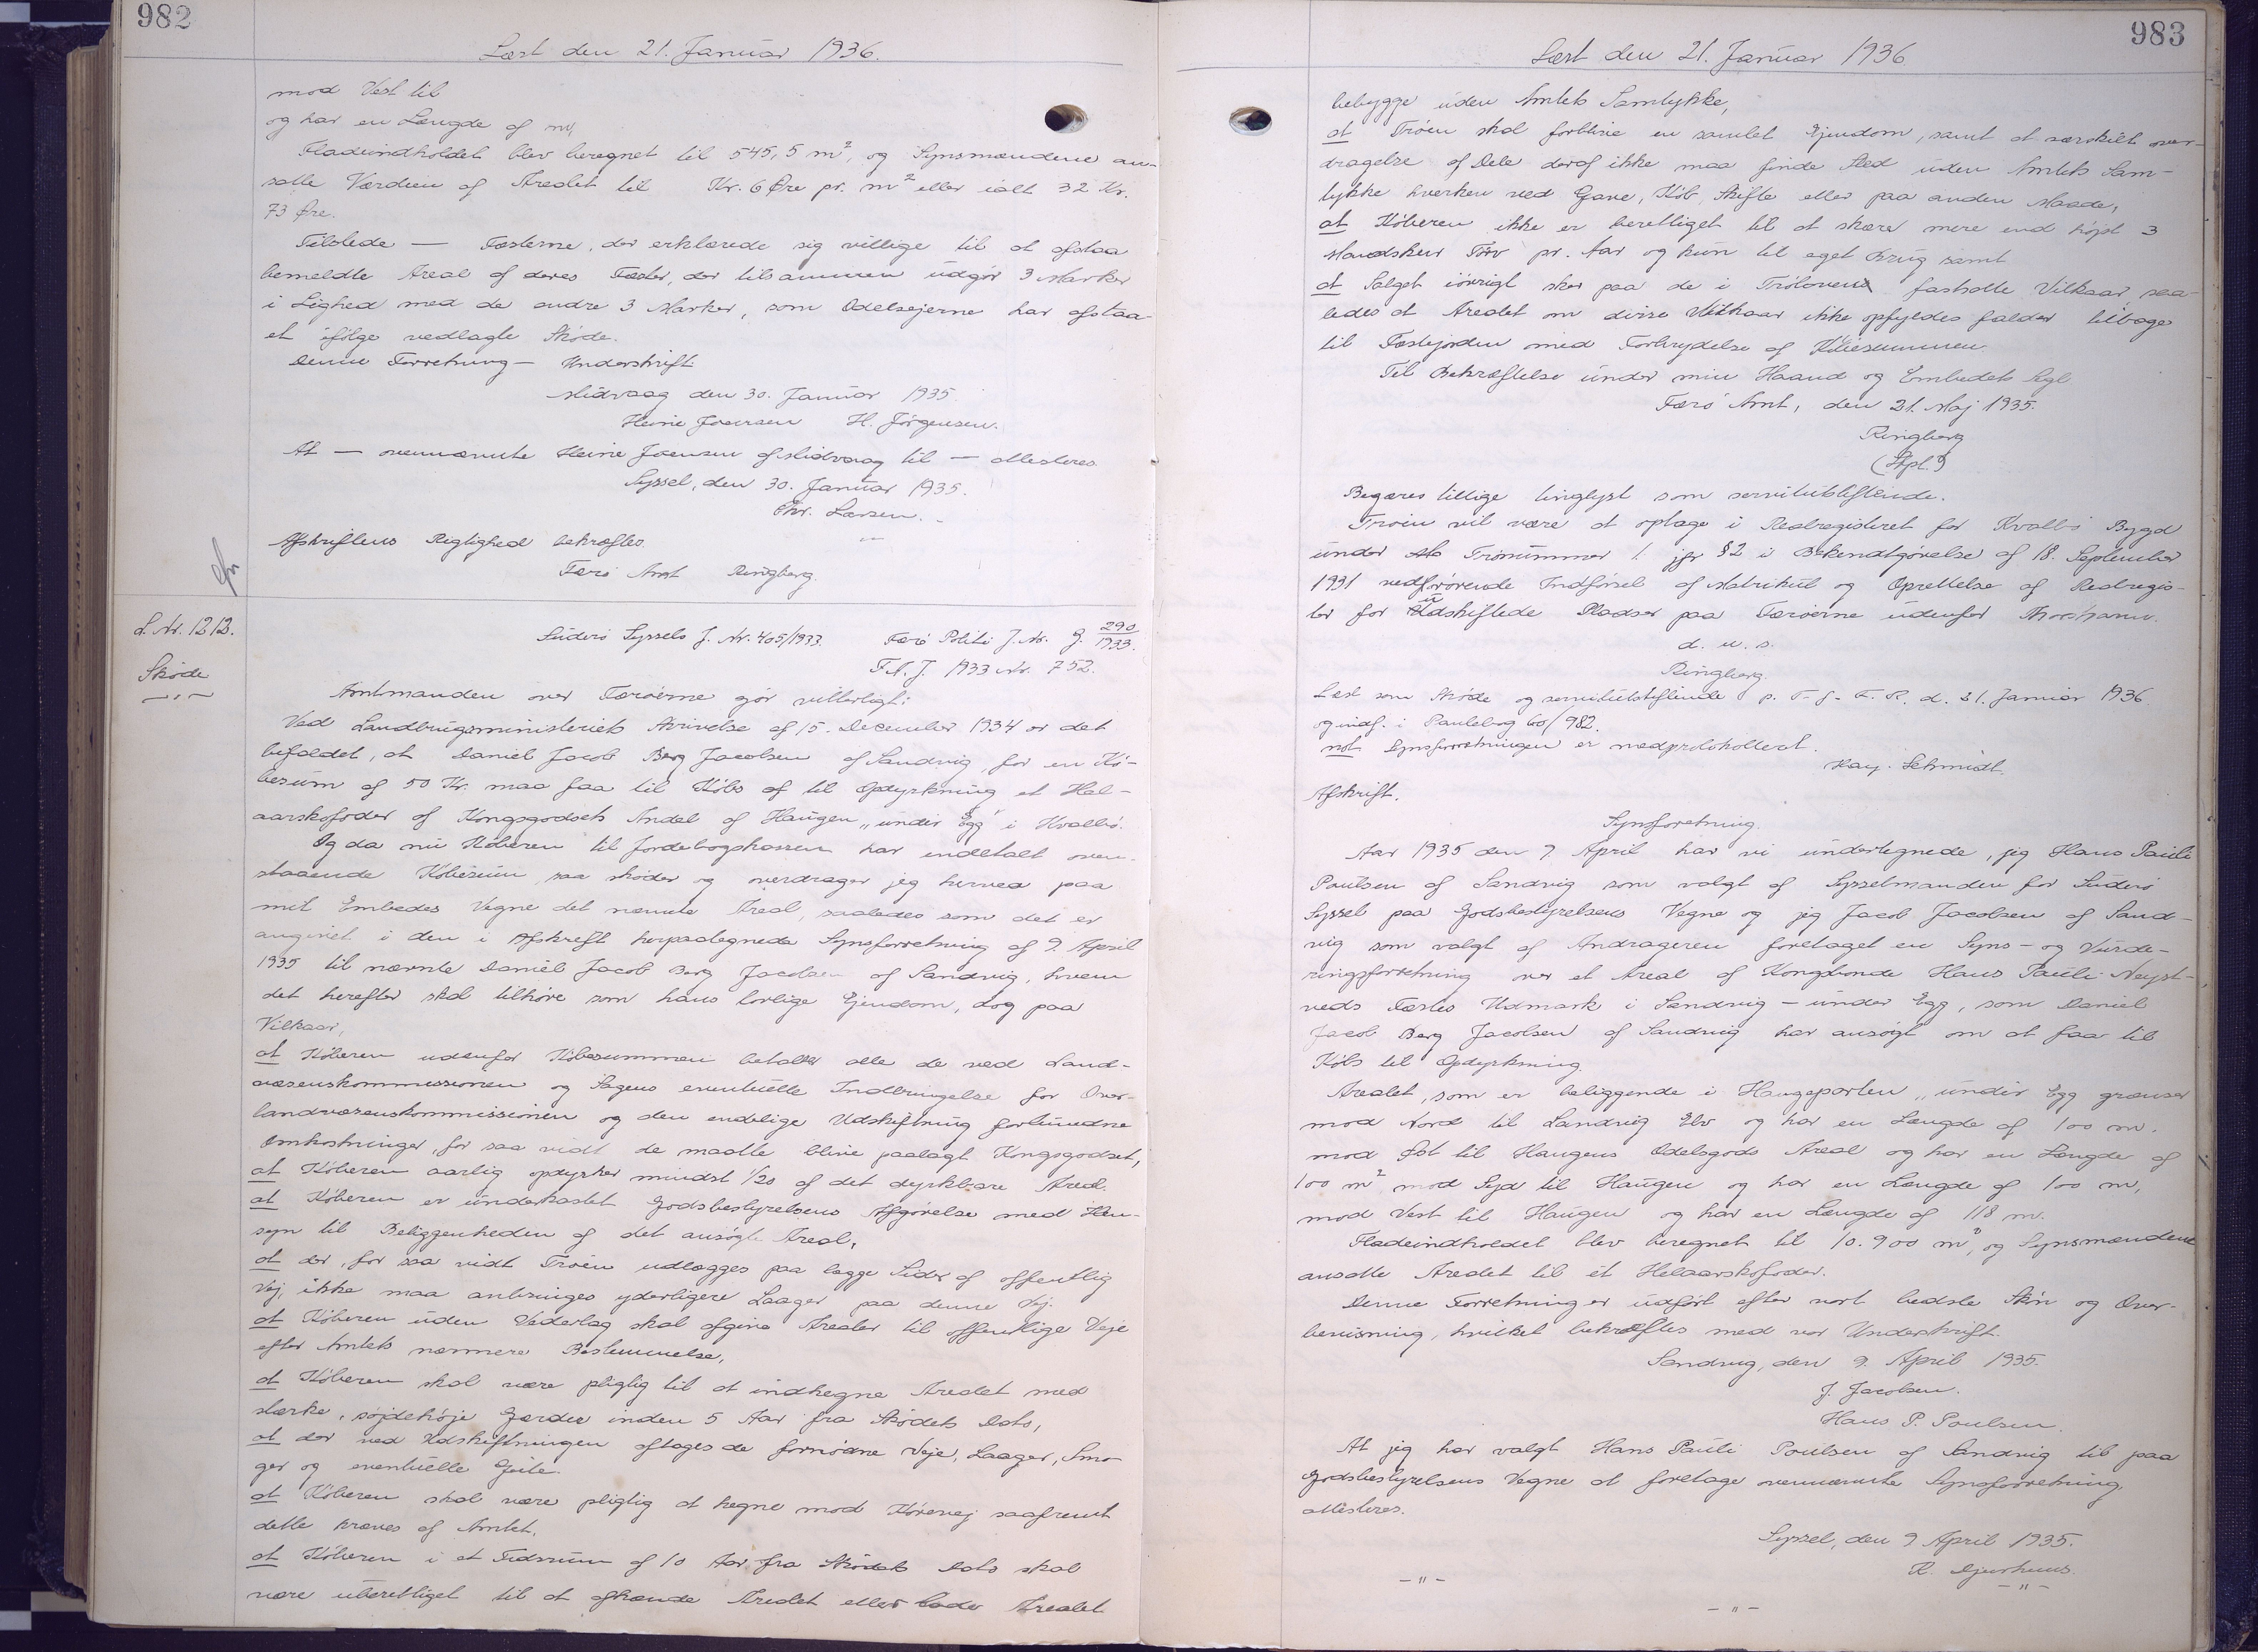 982
Læst den 21. Januar 1936.
mod Vest til
og har en Længde af m,
Fladeindholdet blev beregnet til 545,5 m², og Synsmændene an-
satte Værdien af Arealet til Kr. 6 Øre pr. m² eller ialt 32 Kr.
73 Øre.
Tilstede — Fæsterne, der erklærede sig villige til at afstaa
bemeldte Areal af deres Fæster, der tilsammen udgør 3 Marker
i Lighed med de andre 3 Marker, som Odelsejerne har afstaa-
et ifølge vedlagte Skøde.
Denne Forretning — Underskrift
Midvaag den 30. Januar 1935.
Heine Joensen H. Jørgensen.
At — ovennævnte Heine Joensen af Midvaag til — attesteres.
Syssel, den 30. Januar 1935.
Chr. Larsen.
Afskriftens Rigtighed bekræftes.
Færø Amt Ringberg.
L. Nr. 1212.
Skøde
Suderø Syssels J. Nr. 405/1933. Færø Politi J. Nr. G. 290/1933.
F. A. J. 1933 Nr. 752.
Amtmanden over Færøerne gør vitterligt:
Ved Landbrugsministeriets Skrivelse af 15. December 1934 er det
befalet, at Daniel Jacob Berg Jacobsen af Sandvig for en Kø-
besum af 50 Kr. maa faa til Købs af til Opdyrkning et Hel-
aarskofoder af Kongsgodsets Andel af Haugen „undir Egg" i Hvalbø.
Og da nu Køberen til Jordebogskassen har indbetalt oven-
staaende Købesum, saa skøder og overdrager jeg herved paa
mit Embedes Vegne det nævnte Areal, saaledes som det er
angivet i den i Afskrift herpaategnede Synsforretning af 9. April
1935 til nævnte Daniel Jacob Berg Jacobsen af Sandvig, hvem
det herefter skal tilhøre som hans lovlige Ejendom, dog paa
Vilkaar,
at Køberen udenfor Købesummen betaler alle de ved Land-
væsenskommissionen og Sagens eventuelle Indbringelse for Over-
landvæsenskommissionen og den endelige Udskiftning forbundne
Omkostninger, for saa vidt de maatte blive paalagt Kongsgodset,
at Køberen aarlig opdyrker mindst 1/20 af det dyrkbare Areal.
at Køberen er underkastet Godsbestyrelsens Afgørelse med Hen-
syn til Beliggenheden af det ansøgte Areal,
at der, for saa vidt Trøen udlægges paa begge Sider af offentlig
Vej, ikke maa anbringes yderligere Laager paa denne Vej.
at Køberen uden Vederlag skal afgive Arealer til offentlige Veje
efter Amtets nærmere Bestemmelse,
at Køberen skal være pligtig til at indhegne Arealet med
stærke, søjdehøje Gærder inden 5 Aar fra Skødets Dato,
at der ved Udskiftningen aftages de fornødne Veje, Laager, Smø-
ger og eventuelle Geile.
at Køberen skal være pligtig at hegne mod Kørevej saafremt
dette kræves af Amtet.
at Køberen i et Tidsrum af 10 Aar fra Skødets Dato skal
være uberettiget til at afhænde Arealet eller lade Arealet
983
Læst den 21. Januar 1936
bebygge uden Amtets Samtykke,
at Trøen skal forblive en samlet Ejendom, samt at særskilt over-
dragelse af Dele deraf ikke maa finde Sted uden Amtets Sam-
tykke hverken ved Gave, Køb, Skifte eller paa anden Maade,
at Køberen ikke er berettiget til at skære mere end højst 3
Mandskur Tørv pr. Aar og kun til eget Brug samt
at Salget iøvrigt sker paa de i Trøloven fastsatte Vilkaar, saa-
ledes at Arealet om disse Vilkaar ikke opfyldes falder tilbage
til Fæstejorden med Fortrydelse af Købesummen.
Til Bekræftelse under min Haand og Embedets Segl.
Færø Amt, den 21. Maj 1935.
Ringberg
Begæres tillige tinglyst som servitutstiftende.
Trøen vil være at optage i Realregisteret for Kvalbø Bygd
under Trønummer 1 jfr § 2 i Bekendtgørelse af 18. September
1931 vedrørende Indførsel af Matrikul og Oprettelse af Realregis-
ter for udskiftede Pladser paa Færøerne udenfor Thorshavn.
d. u. s.
Ringberg.
Læst som Skøde og servitutstiftende p. F. J. F. R. d. 21. Januar 1936
og indf. i Pantebog 60/982.
not. Synsforretningen er medprotokolleret.
Hay-Schmidt.
Afskrift.
Synsforretning.
Aar 1935 den 9. April har vi undertegnede, jeg Hans Pauli
Poulsen af Sandvig som valgt af Sysselmanden for Suderø
Syssel paa Godsbestyrelsens Vegne og jeg Jacob Jacobsen af Sand-
vig som valgt af Andrageren foretaget en Syns- og Vurde-
ringsforretning over et Areal af Kongsbonde Hans Pauli Neyst-
veds Fæstes Udmark i Sandvig — undir Egg, som Daniel
Jacob Berg Jacobsen af Sandvig har ansøgt om at faa til
Købs til Opdyrkning.
Arealet, som er beliggende i Haugeparten „undir Egg grænser
mod Nord til Sandvig Elv og har en Længde af 100 m.
mod Øst til Haugens Odelsgods Areal og har en Længde af
100 m² mod Syd til Haugen og har en Længde af 100 m,
mod Vest til Haugen og har en Længde af 118 m.
Fladeindholdet blev beregnet til 10.900 m², og Synsmændene
ansatte Arealet til ét Helaarskofoder.
Denne Forretning er udført efter vort bedste Skøn og Over-
bevisning, hvilket bekræftes med vor Underskrift.
Sandvig, den 9. April 1935.
J. Jacobsen.
Hans P. Poulsen.
At jeg har valgt Hans Pauli Poulsen af Sandvig til paa
Godsbestyrelsens Vegne at foretage ovennævnte Synsforretning,
attesteres.
Syssel, den 9 April 1935.
R. Djurhuus.